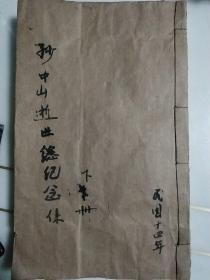 民国十四年
下册
孙中山逝世總纪念